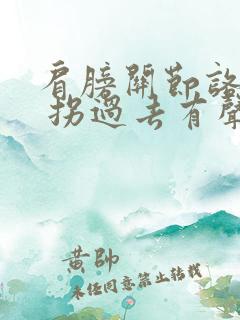 肩膀關節詻
拐過去有聲
黃帥
未经同意禁止转载